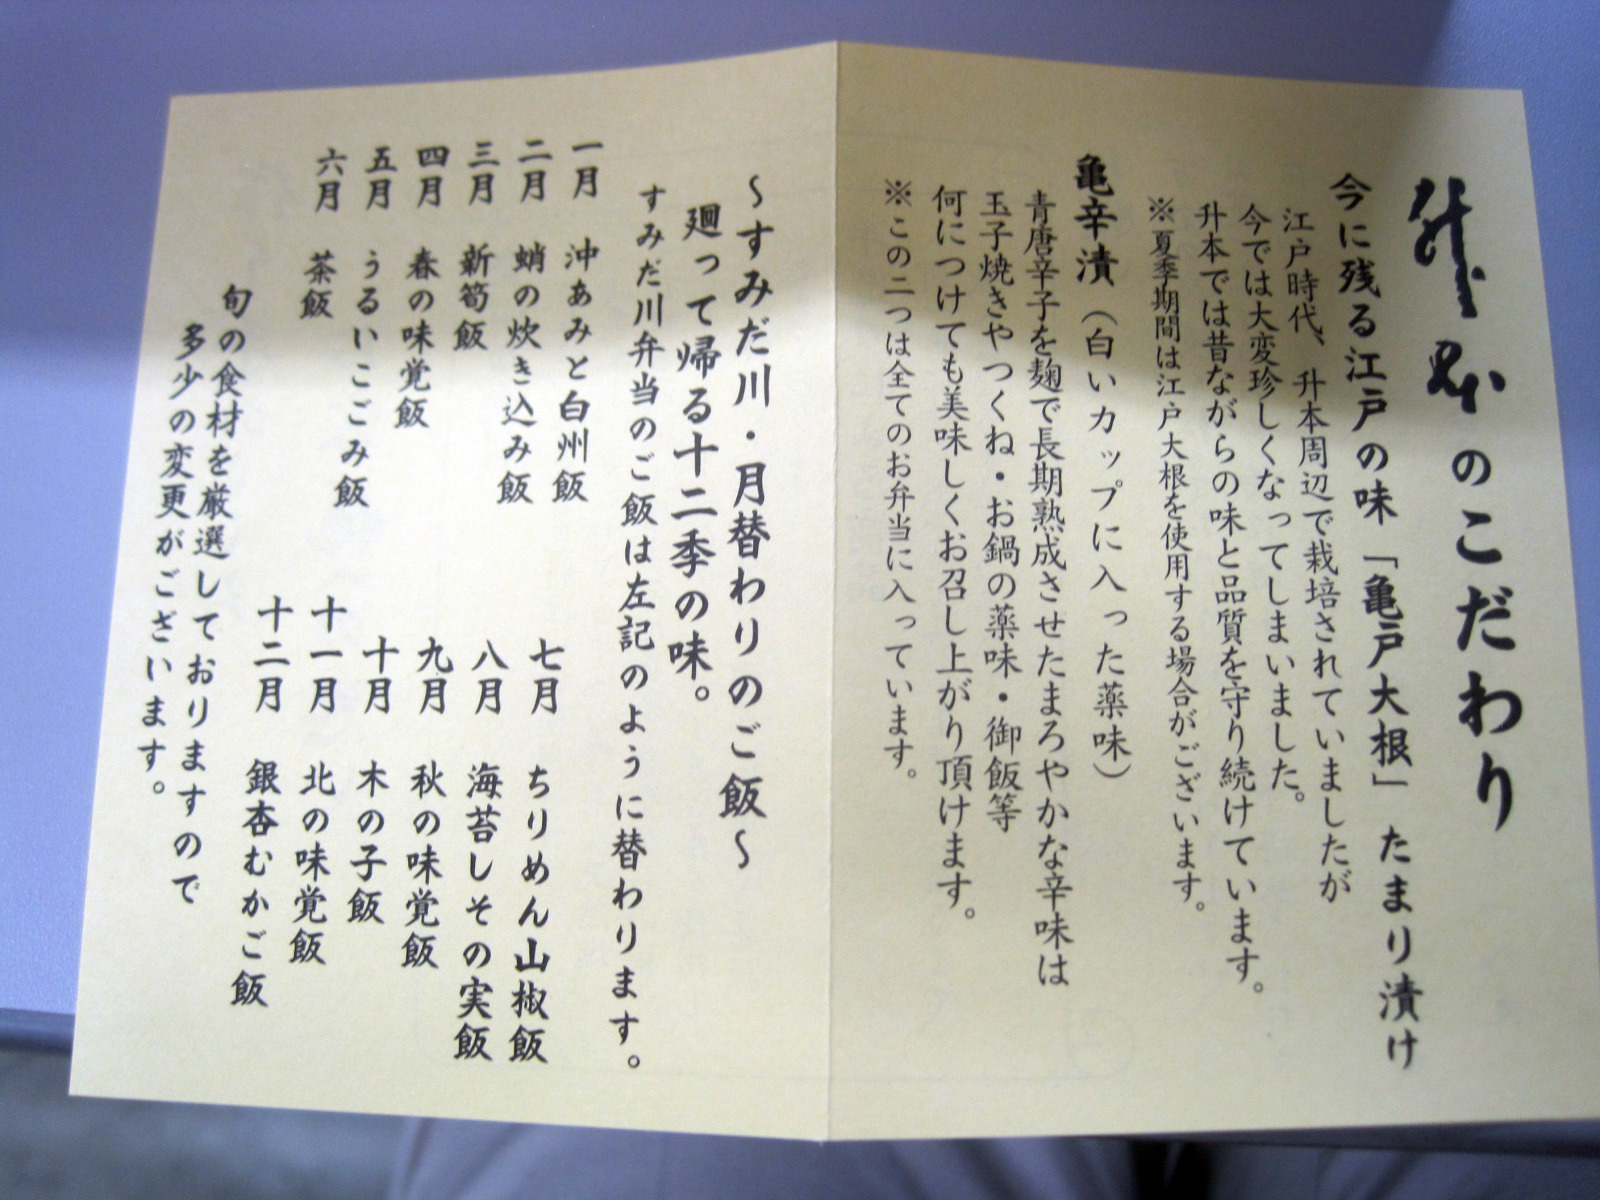 升本のこだわり
今に残る江戸の味「亀戸大根」たまり漬け
江戸時代、升本周辺で栽培されていましたが
今では大変珍しくなってしまいました。
升本では昔ながらの味と品質を守り続けています。
※夏季期間は江戸大根を使用する場合がございます。
亀辛漬（白いカップに入った薬味）
青唐辛子を麹で長期熟成させたまろやかな辛味は
玉子焼きやつくね・お鍋の薬味・御飯等
何につけても美味しくお召し上がり頂けます。
※この二つは全てのお弁当に入っています。
～すみだ川・月替わりのご飯～
廻って帰る十二季の味。
すみだ川弁当のご飯は左記のように替わります。
一月 沖あみと白州飯
二月 蛸の炊き込み飯
三月 新筍飯
四月 春の味覚飯
五月 うるいこごみ飯
六月 茶飯
七月 ちりめん山椒飯
八月 海苔しその実飯
九月 秋の味覚飯
十月 木の子飯
十一月 北の味覚飯
十二月 銀杏むかご飯
旬の食材を厳選しておりますので
多少の変更がございます。